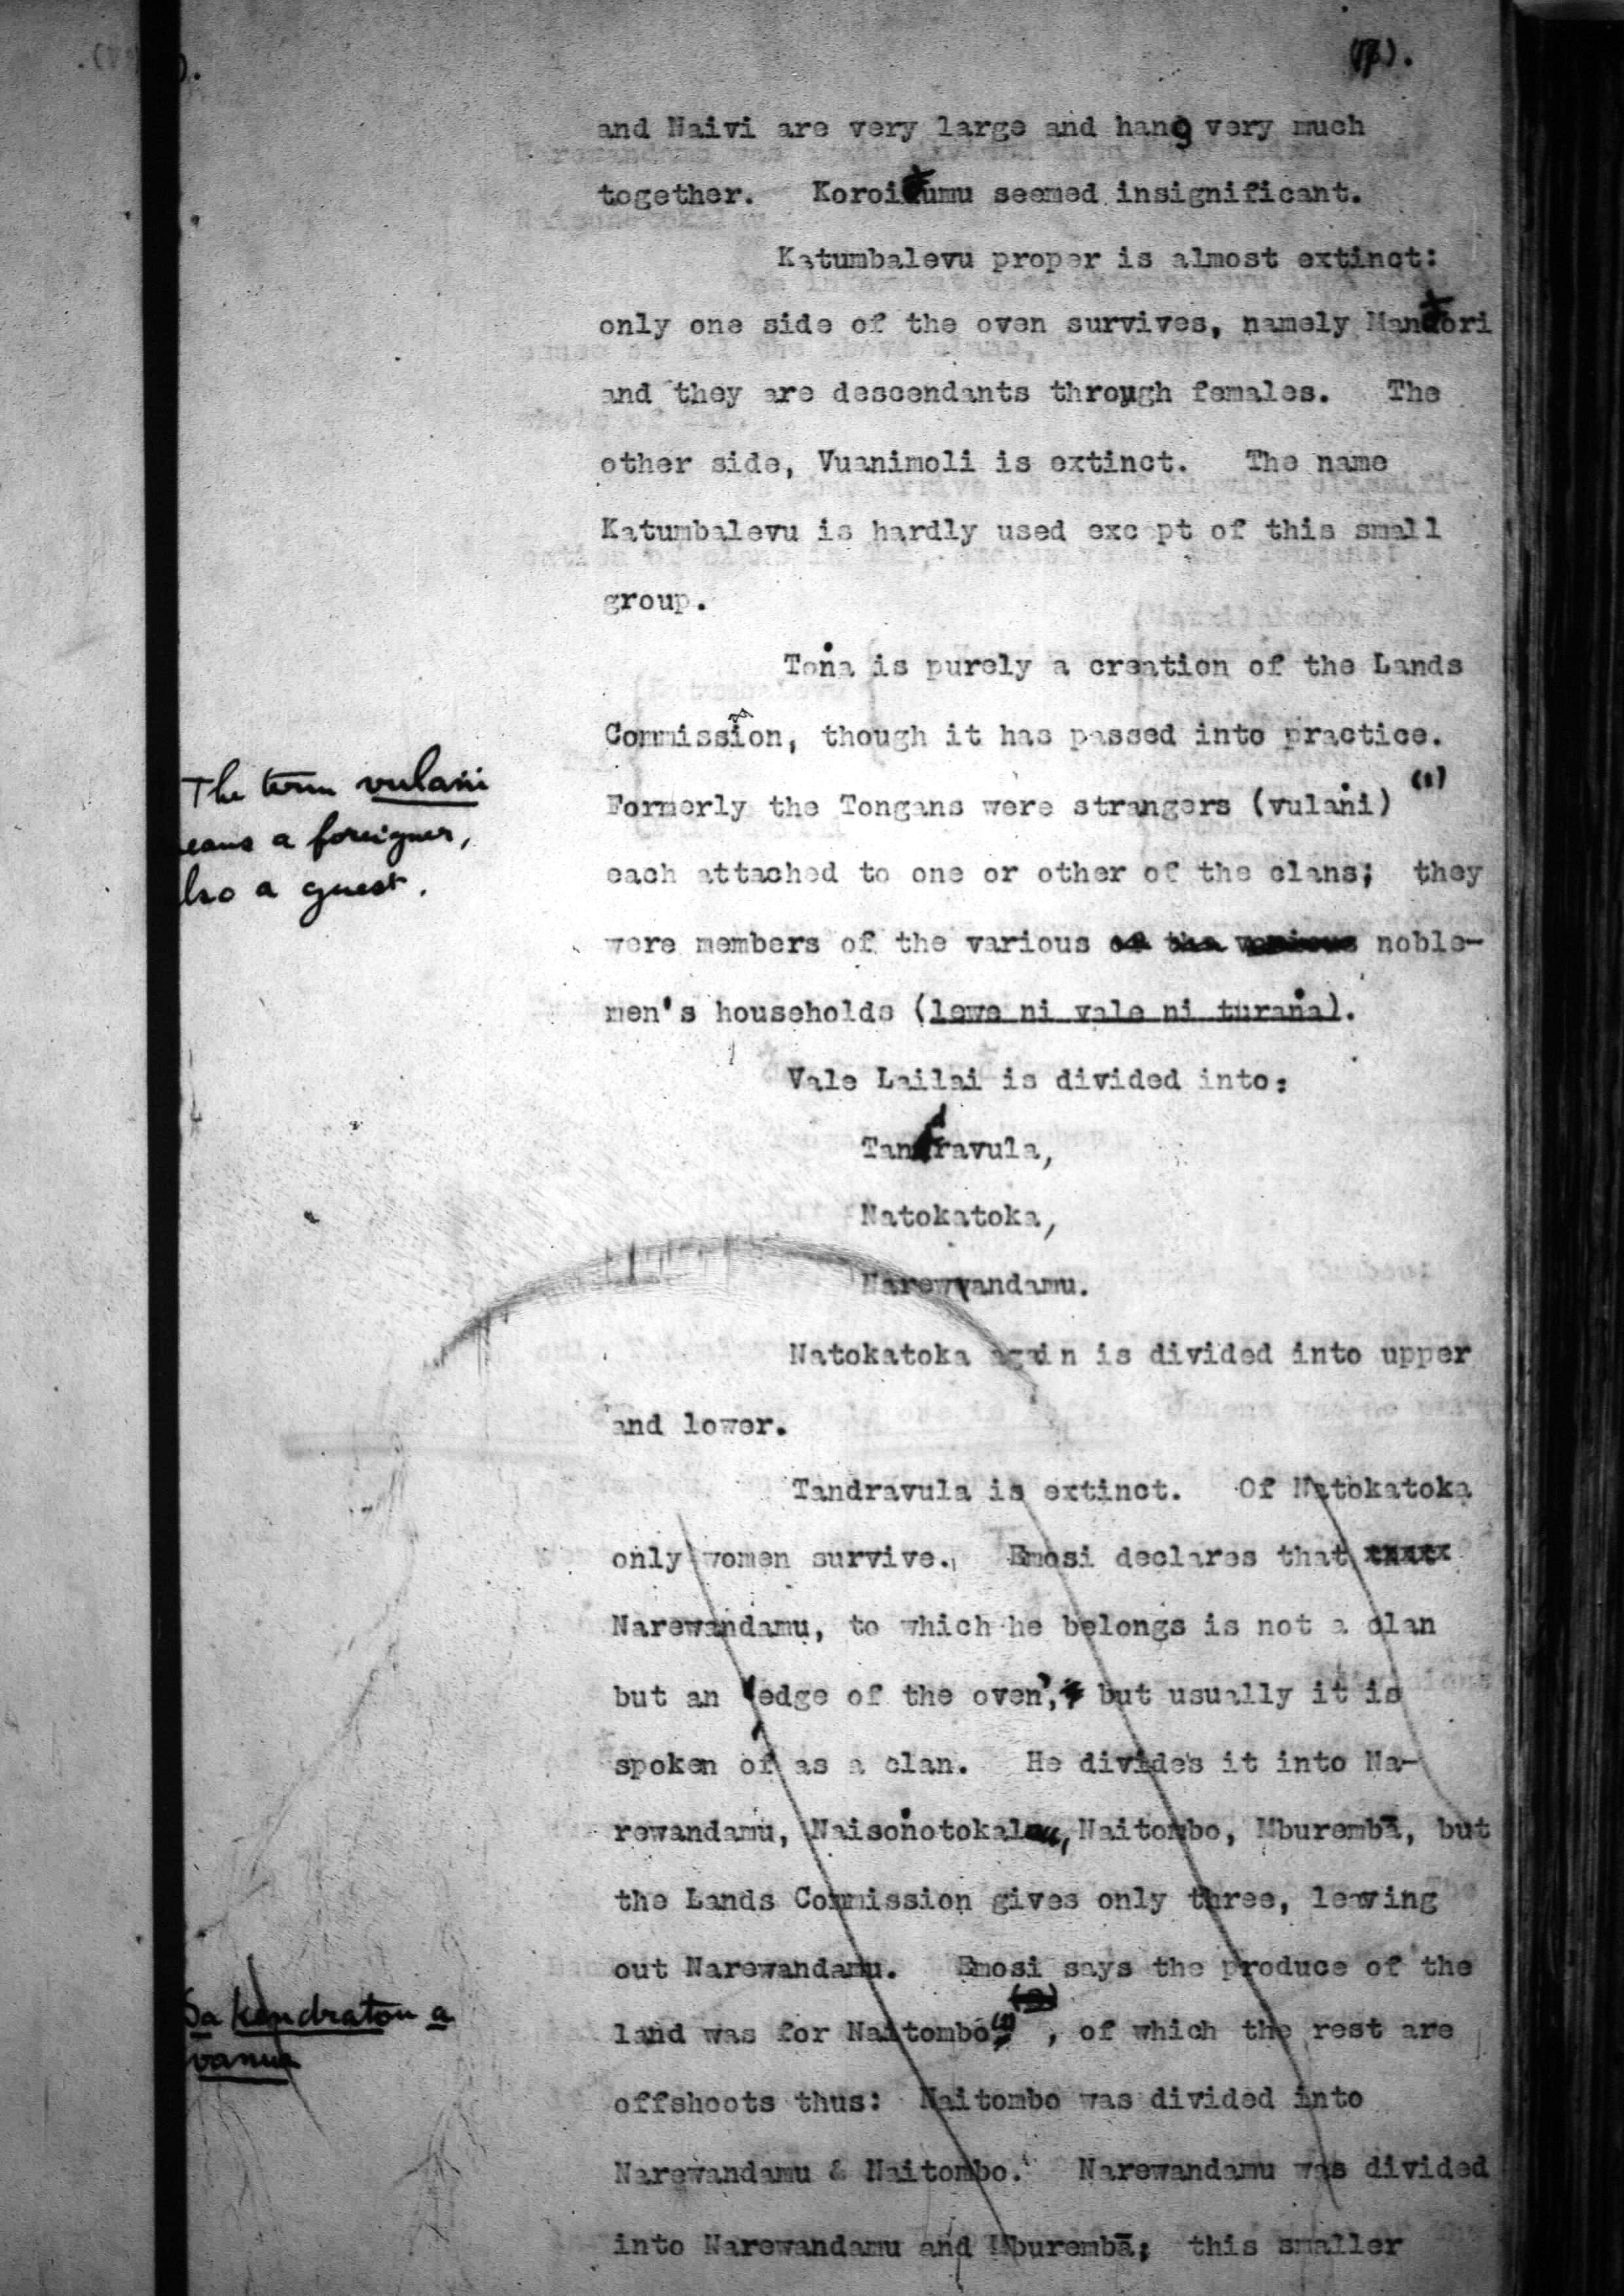 and Naivi are very large and hang very much
together. Koroitumu seemed insignificant.
Katumbalevu proper is almost extinct:
only one side of the oven survives, namely
and they are descendants through females. The
other side, Vuanimoli is extinct. The name
Katumbalevu is hardly used except of this small
group.
Toṅa is purely a creation of the Lands
Commission, though it has passed into practice.
The term vulaṅi
means a foreigner,
also a guest.
Formerly the Tongans were strangers (vulaṅi) (1)
each attached to one or other of the clans; they
were members of the various of the various noble-
men's households (lewe ni vale ni turaṅa).
Vale Lailai is divided into:
Tandravula,
Natokatoka,
Narewandamu.
Natokatoka again is divided into upper
and lower.
Tandravula is extinct. Of Natokatoka
only women survive. Emosi declares that
Narewandamu, to which he belongs is not a clan
but an 'edge of the oven', but usually it is
spoken of as a clan. He divides it into Na-
rewandamu, Naisoṅotokalau, Naitombo, Mburembā, but
the Lands Commission gives only three, leaving
out Narewandamu. Emosi says the produce of the
Sa kendratou a
vanua
land was for Naitombo, of which the rest are
offshoots thus: Naitombo was divided into
Narewandamu & Naitombo. Narewandamu was divided
into Narewandamu and Mburembā; this smaller